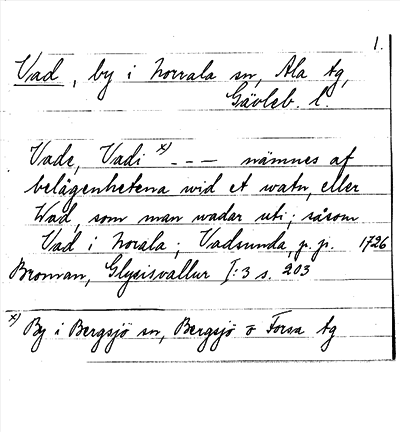 1.
Vad, by i Norrala sn, Ala tg,
Gävleb. l.
Vade, Vadi x) - - - nämnes af
belägenhetena wid et watn, eller
Wad, som man wadar uti; såsom
Vad i Norala; Vadsunda, p. p. 1726
Broman, Glysisvallur I:3 s. 203
x) By i Bergsjö sn, Bergsjö o Forsa tg